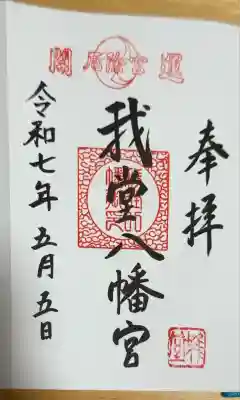 奉拝
我堂八幡宮
令和七年五月五日